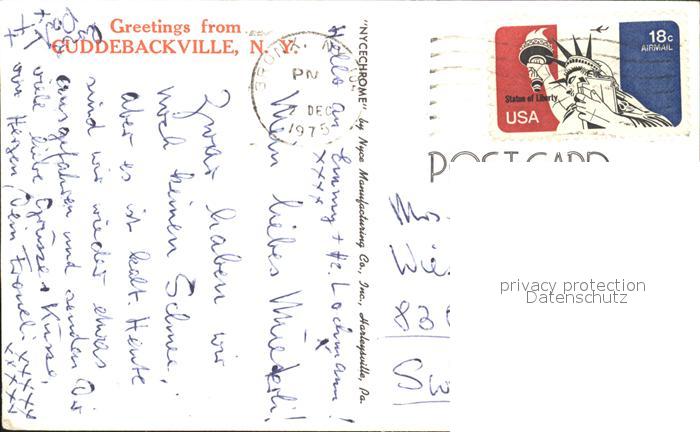 Greetings from
CUDDEBACKVILLE, N. Y.
"NYCECHROME" by Nyce Manufacturing Co., Inc., Harleysville, Pa.
BRONX
PM
DEC
1975
18c
AIRMAIL
Statue of Liberty
USA
POST CARD
Hallo an Emmy + He. Lochmann!
xxxx
Mein liebes Müederli!
Zwar haben wir
noch keinen Schnee,
aber es ist kalt. Heute
sind wir wieder etwas
ausgefahren und senden Dir
viele liebe Grüsse + Küsse,
von Herzen, Dein Franeli xxxxx
xxxxx
privacy protection
Datenschutz